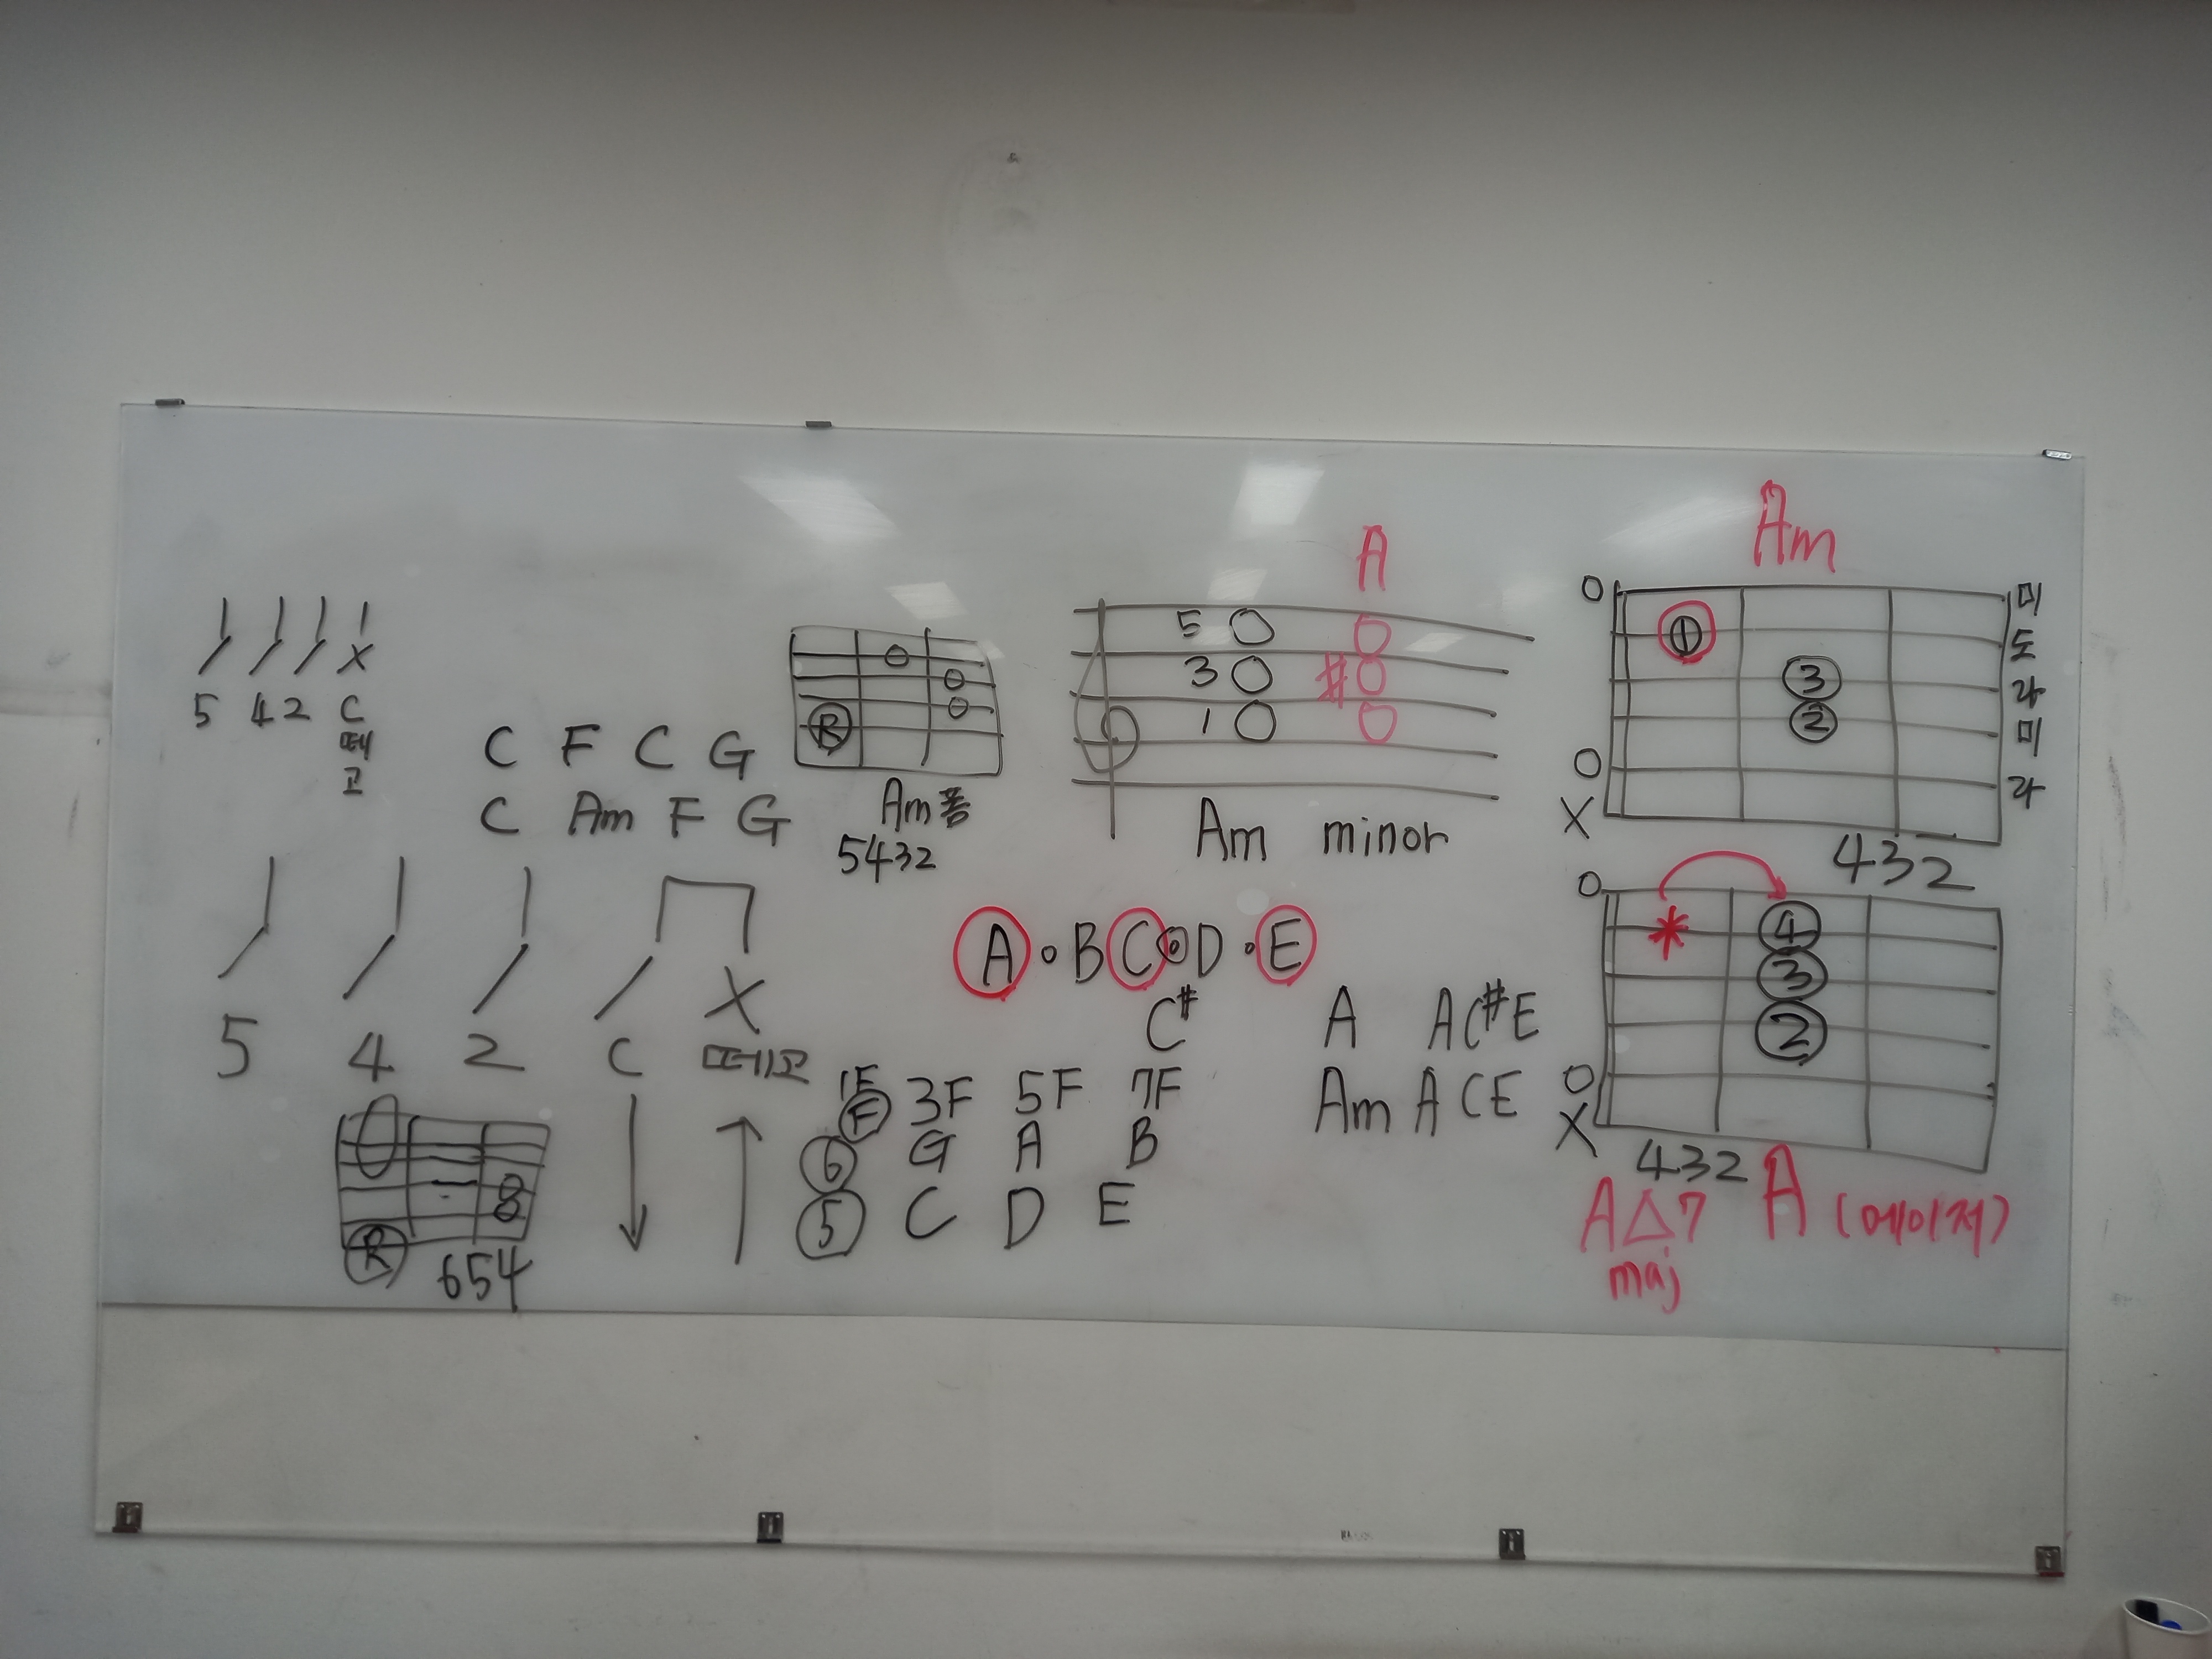 5 4 2 C
떼고
C F C G
C Am F G
R
Am폼
5432
5 4 2 C X
떼고
R
654
A
5
3 #
1
Am minor
A B C D E
C#
A A C# E
Am A C E
1F 3F 5F 7F
6 F G A B
5 C D E
Am
O 미
1 도
3 라
2 미
O 라
X
432
O
* 4
3
2
O
X
432
A△7 A (메이저)
maj